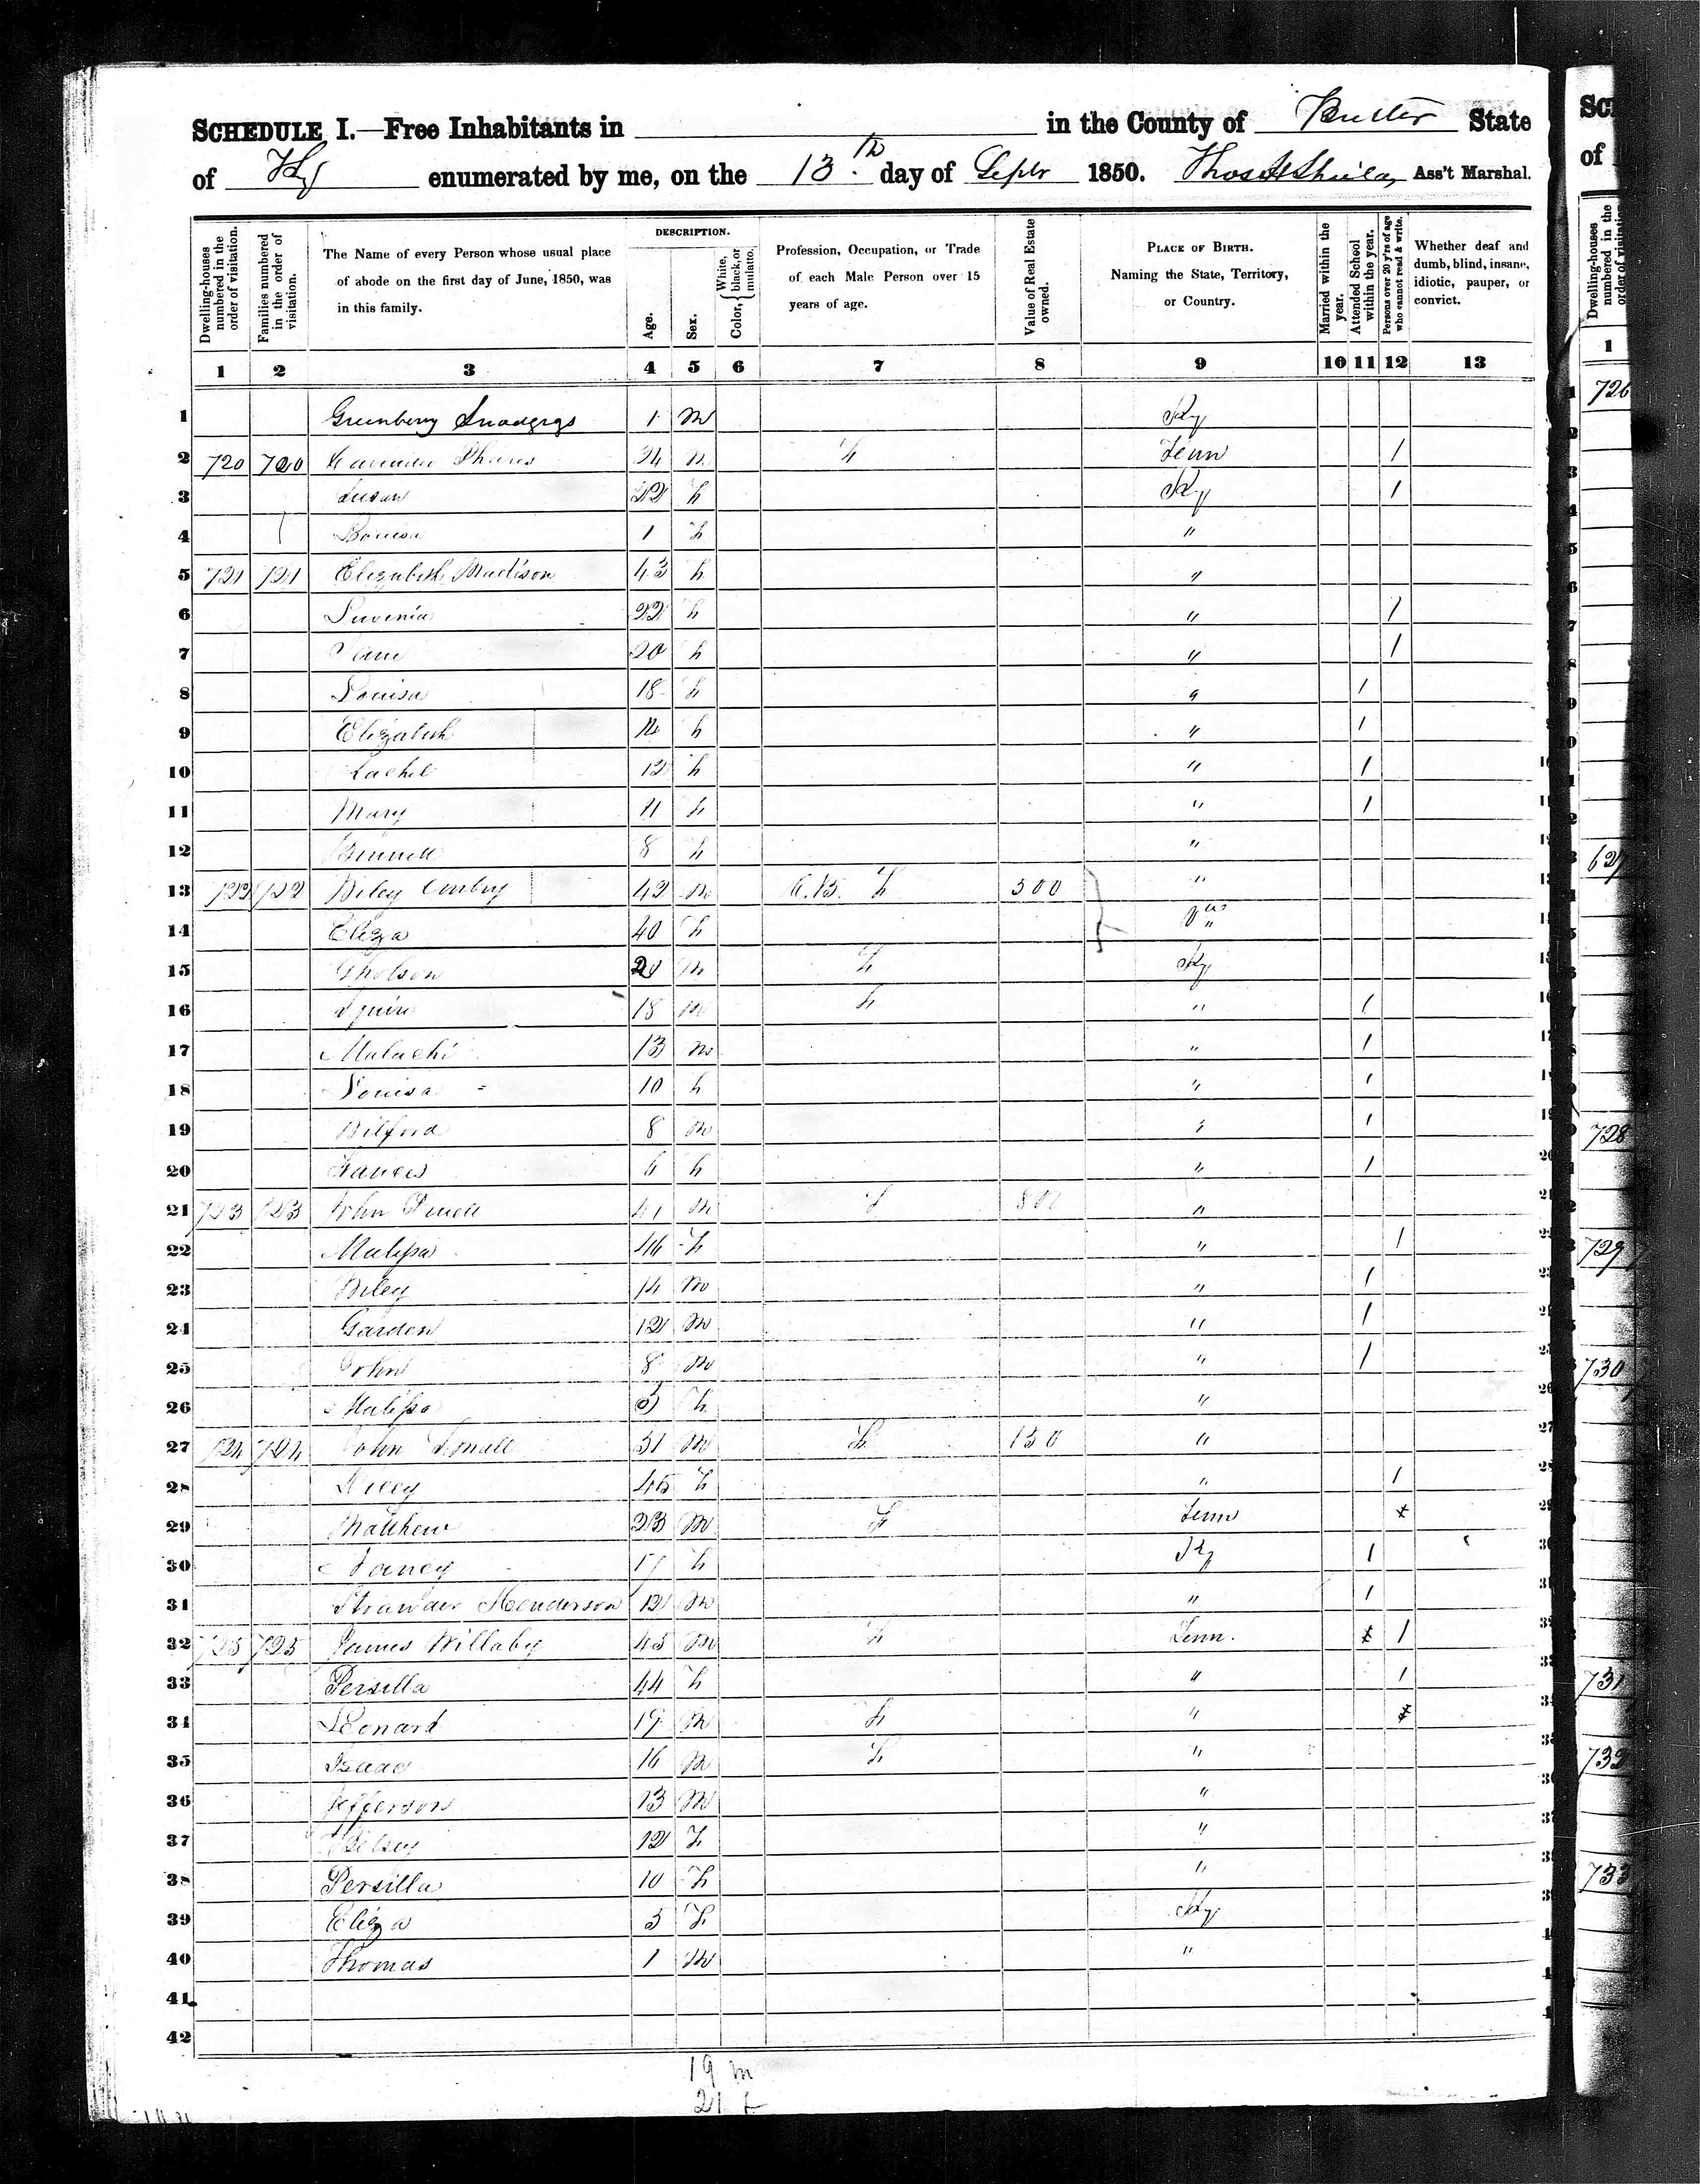 SCHEDULE I.—Free Inhabitants in in the County of Butler State
of Ky enumerated by me, on the 13th day of Septr 1850. Ass't Marshal.
Dwelling-houses numbered in the order of visitation.
Families numbered in the order of visitation.
The Name of every Person whose usual place of abode on the first day of June, 1850, was in this family.
DESCRIPTION.
Age.
Sex.
Color, { White, black, or mulatto.
Profession, Occupation, or Trade of each Male Person over 15 years of age.
Value of Real Estate owned.
PLACE OF BIRTH. Naming the State, Territory, or Country.
Married within the year.
Attended School within the year.
Persons over 20 y'rs of age who cannot read & write.
Whether deaf and dumb, blind, insane, idiotic, pauper, or convict.
1 2 3 4 5 6 7 8 9 10 11 12 13
1 Greenberry 1 m Ky
2 720 720 24 m F Tenn /
3 Susan 22 f Ky /
4 Louisa 1 f "
5 721 721 Elizabeth Madison 43 f "
6 Luvenia 22 f " /
7 Jane 20 f " /
8 Louisa 18 f " /
9 Elizabeth 14 f " /
10 Rachel 12 f " /
11 Mary 11 f " /
12 8 f "
13 722 722 Wiley Embry 42 m F 500 "
14 Eliza 40 f "
15 Gholson m F Ky
16 Squire 18 m F " /
17 Malachi 13 m " /
18 Louisa 10 f " /
19 Wilford 8 m " /
20 Frances 6 f " /
21 723 723 John 41 m F 800 "
22 Malissa 46 f " /
23 Wiley 14 m " /
24 Garden 12 m " /
25 John 8 m " /
26 Malissa f "
27 724 724 John Small 51 m F 150 "
28 Dicey 45 f " /
29 Matthew 23 m F Tenn
30 Nancy 17 f Ky /
31 Strawder Henderson 12 m " /
32 725 725 James Willaby 45 m F Tenn. /
33 Persilla 44 f " /
34 Leonard 19 m F "
35 Isaac 16 m F "
36 Jefferson 13 m "
37 Betsey 12 f "
38 Persilla 10 f "
39 Eliza 5 f Ky
40 Thomas 1 m "
41
42
19 m
21 f
SCH
of
Dwelling-houses numbered in the order of visitation
1
726
627
728
729
730
731
732
733